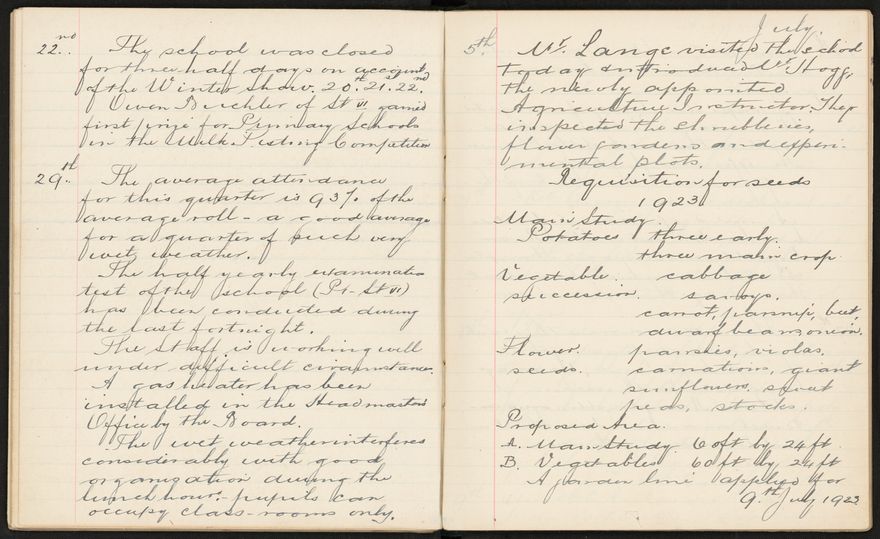 22nd. The school was closed
for three half days on account
of the Winter Show. 20th. 21st. 22nd.
Owen Buchler of St VI gained
first prize for Primary Schools
in the Milk Testing Competition
29th. The average attendance
for this quarter is 93% of the
average roll - a good average
for a quarter of such very
wet weather.
The half yearly examination
test of the school (P1 - St VI)
has been conducted during
the last fortnight.
The staff is working well
under difficult circumstances.
A gas heater has been
installed in the Headmaster's
Office by the Board.
The wet weather interferes
considerably with good
organization during the
lunch hour - pupils can
occupy class-rooms only.
July.
5th. Mr. Lange visited the school
today & introduced Mr. Hogg,
the newly appointed
Agriculture Instructor. They
inspected the shrubberies,
flower gardens and experi-
mental plots.
Requisition for seeds
1923
Main Study.
Potatoes three early.
three main crop.
Vegetable. cabbage
succession. savoys.
carrot, parsnip, beet,
dwarf beans, onion.
Flower. pansies, violas,
seeds. carnations, giant
sunflowers, sweet
peas, stocks.
Proposed Area.
A. Main Study. 60ft by 24ft.
B. Vegetables 60ft by 24ft
A garden line applied for
9.th July 1923